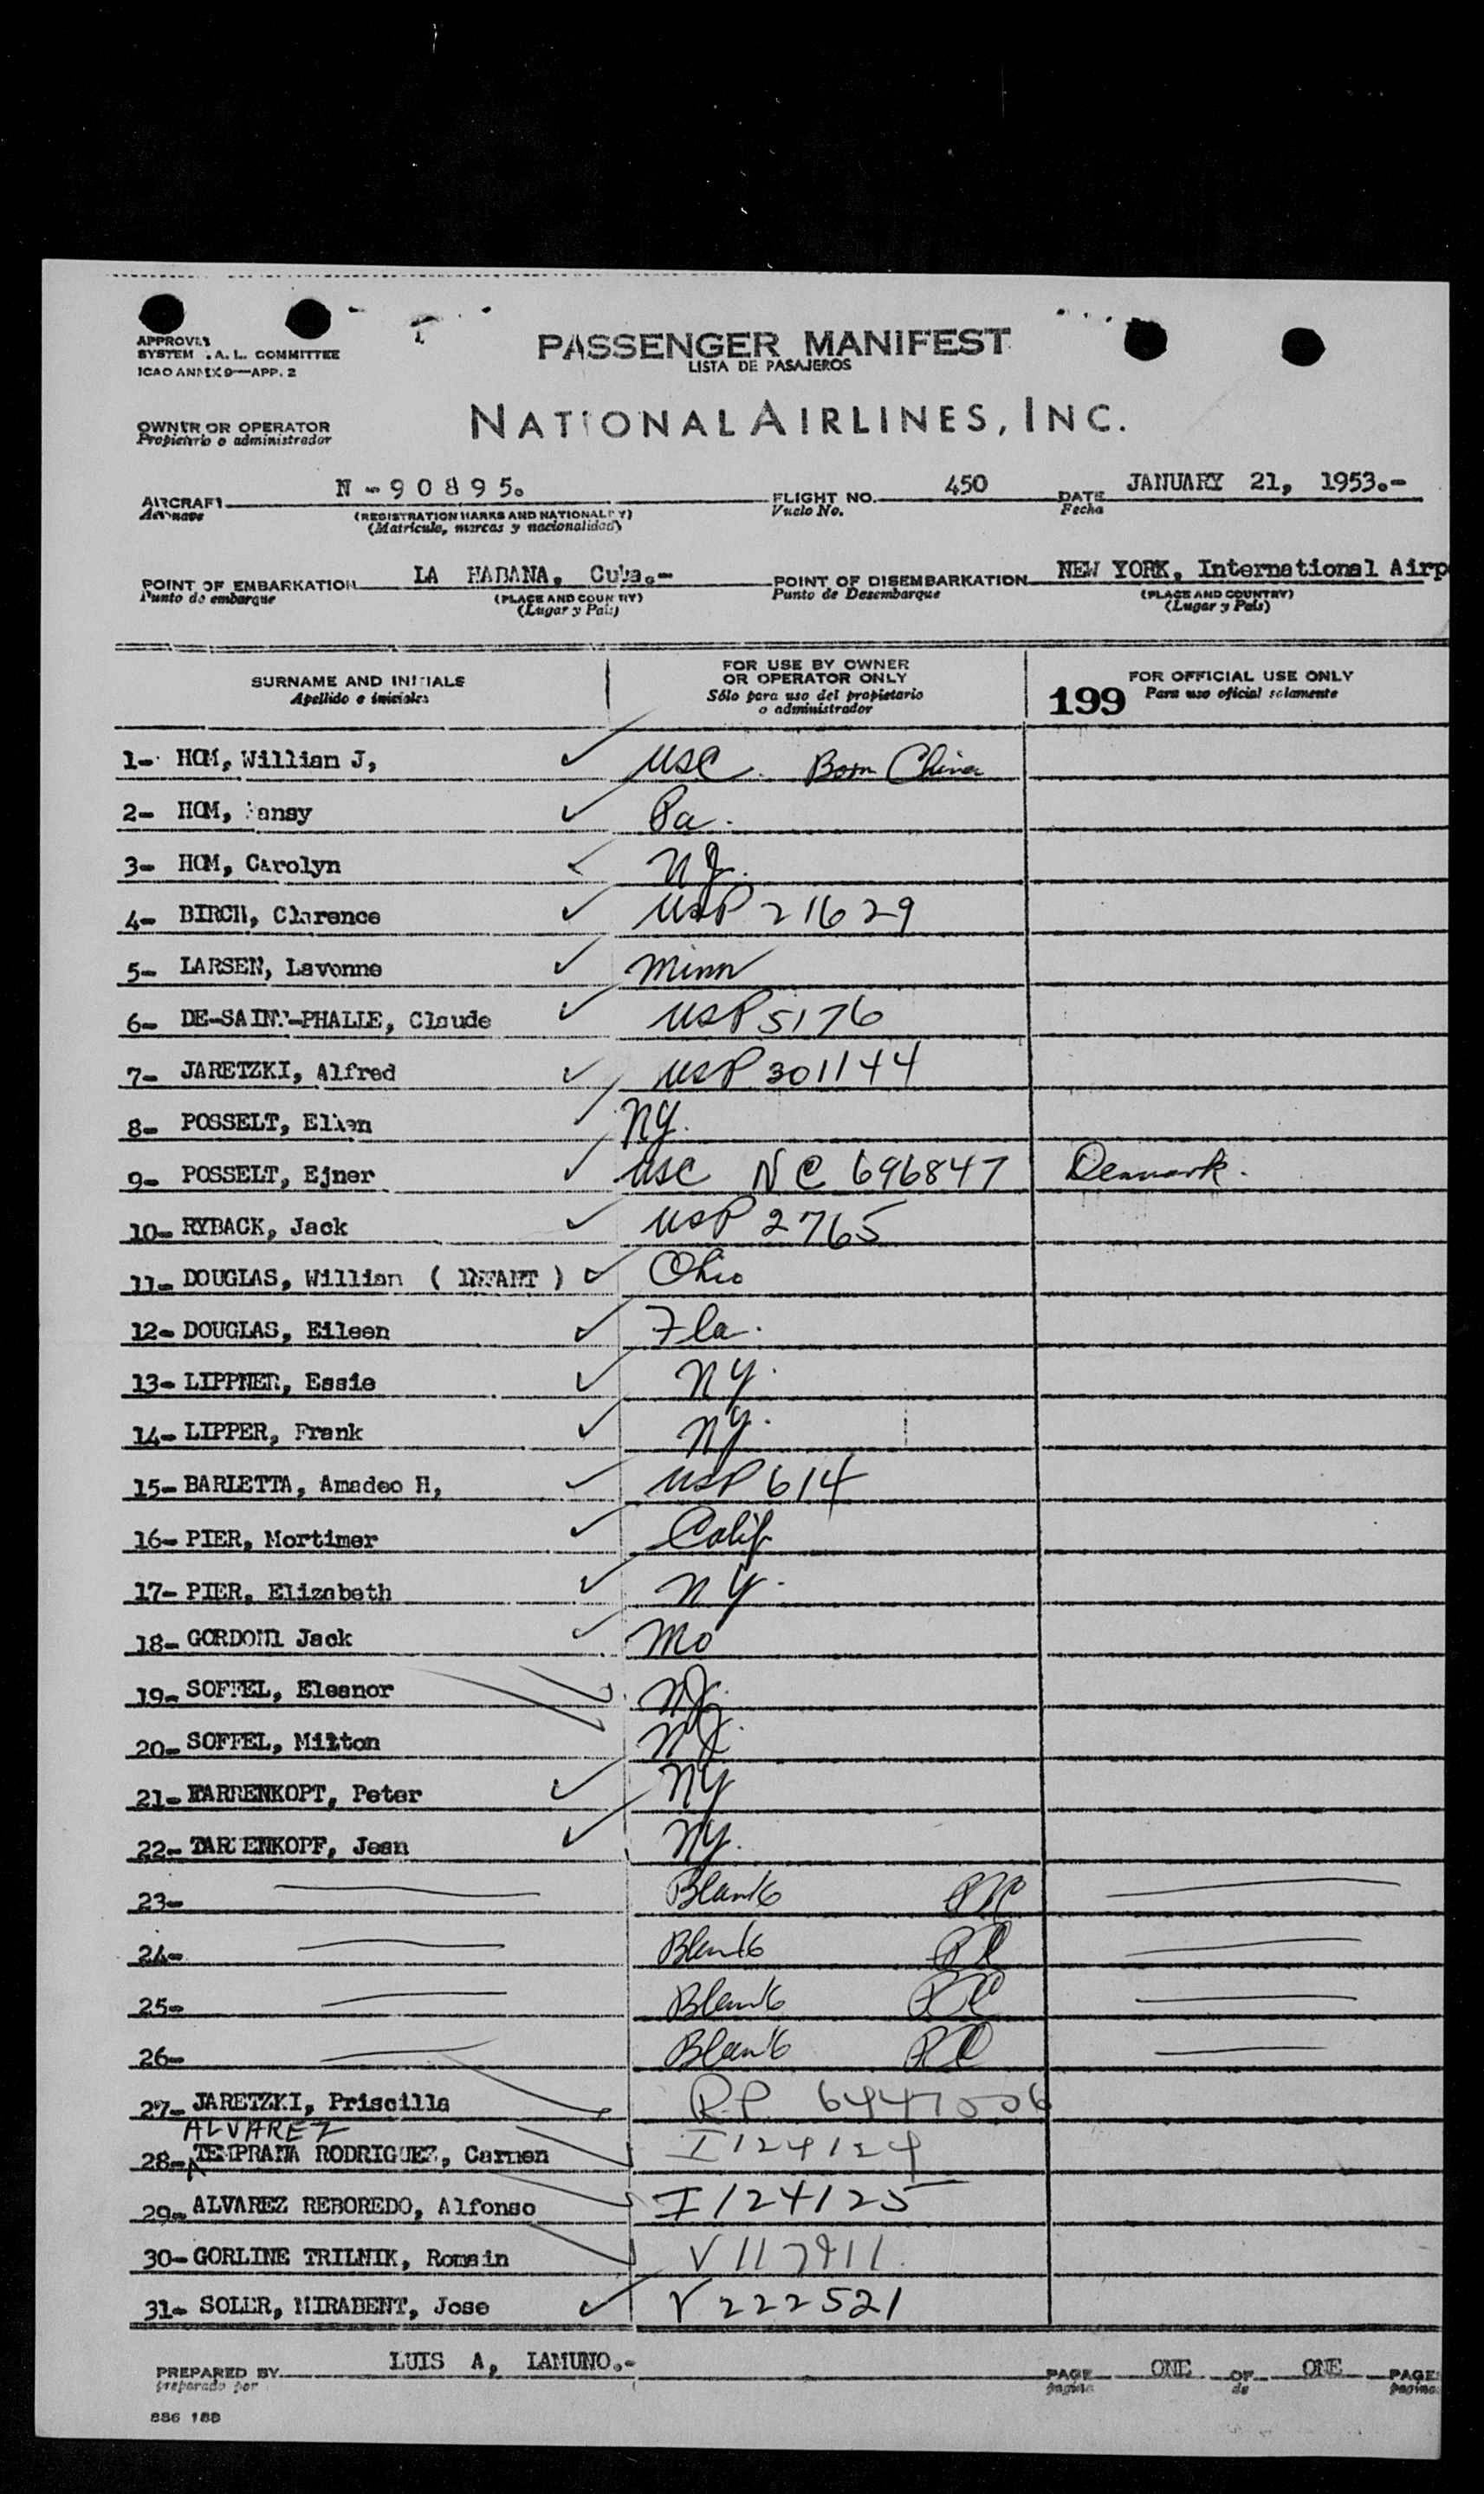 PASSENGER MANIFEST
LISTA DE PASAJEROS
APPROVED
SYSTEM .A.L. COMMITTEE
ICAO ANNEX 9—APP. 2
NATIONAL AIRLINES, INC.
OWNER OR OPERATOR
Propietario o administrador
AIRCRAFT N-90895.
Aeronave
(REGISTRATION MARKS AND NATIONALITY)
(Matrícula, marcas y nacionalidad)
FLIGHT NO. 450
Vuelo No.
DATE JANUARY 21, 1953.-
Fecha
POINT OF EMBARKATION LA HABANA, Cuba.-
Punto de embarque
(PLACE AND COUNTRY)
(Lugar y País)
POINT OF DISEMBARKATION NEW YORK, International Airp
Punto de Desembarque
(PLACE AND COUNTRY)
(Lugar y País)
SURNAME AND INITIALS
Apellido e iniciales
FOR USE BY OWNER
OR OPERATOR ONLY
Sólo para uso del propietario
o administrador
199
FOR OFFICIAL USE ONLY
Para uso oficial solamente
1- HOM, William J, USC. Born China
2- HOM, Pansy Pa.
3- HOM, Carolyn NJ.
4- BIRCH, Clarence USP 21629
5- LARSEN, Lavonne Minn
6- DE-SAINT-PHALLE, Claude USP 5176
7- JARETZKI, Alfred USP 301144
8- POSSELT, Ellen NY.
9- POSSELT, Ejner USC NC 696847 Denmark.
10- RYBACK, Jack USP 2765
11- DOUGLAS, William ( INFANT ) Ohio
12- DOUGLAS, Eileen Fla.
13- LIPPNER, Essie NY.
14- LIPPER, Frank NY.
15- BARLETTA, Amadeo H, USP 614
16- PIER, Mortimer Calif
17- PIER, Elizabeth NY.
18- GORDONI Jack Mo
19- SOFFEL, Eleanor NJ.
20- SOFFEL, Milton NJ.
21- HARRENKOPT, Peter NY
22- TARRENKOPF, Jean NY.
23- Blank
24- Blank
25- Blank
26- Blank
27- JARETZKI, Priscilla R.P. 6447006
ALVAREZ
28- TEMPRANA RODRIGUEZ, Carmen I 124124
29- ALVAREZ REBOREDO, Alfonso I 124125
30- GORLINE TRILNIK, Romain V 117911.
31- SOLER, MIRABENT, Jose V 222521
PREPARED BY LUIS A, LAMUNO.-
preparado por
PAGE ONE OF ONE PAGES
pagina de paginas
886 188